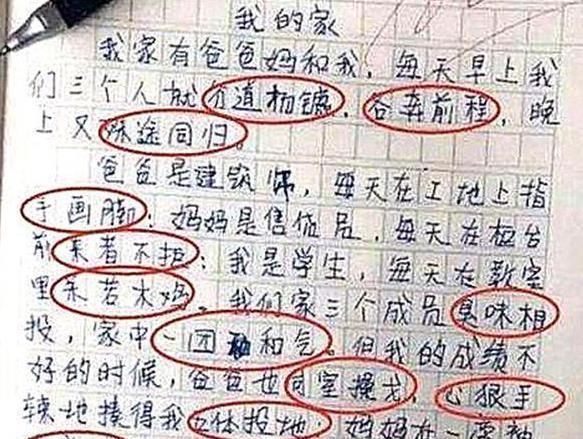 我的家
我家有爸爸妈和我，每天早上我
们三个人就分道扬镳，各奔前程，晚
上又殊途同归。
爸爸是建筑师，每天在工地上指
手画脚；妈妈是售货员，每天在柜台
前来者不拒；我是学生，每天在教室
里呆若木鸡。我们家三个成员臭味相
投，家中一团和气。但我的成绩不
好的时候，爸爸也同室操戈，心狠手
辣地揍得我五体投地，妈妈在一旁